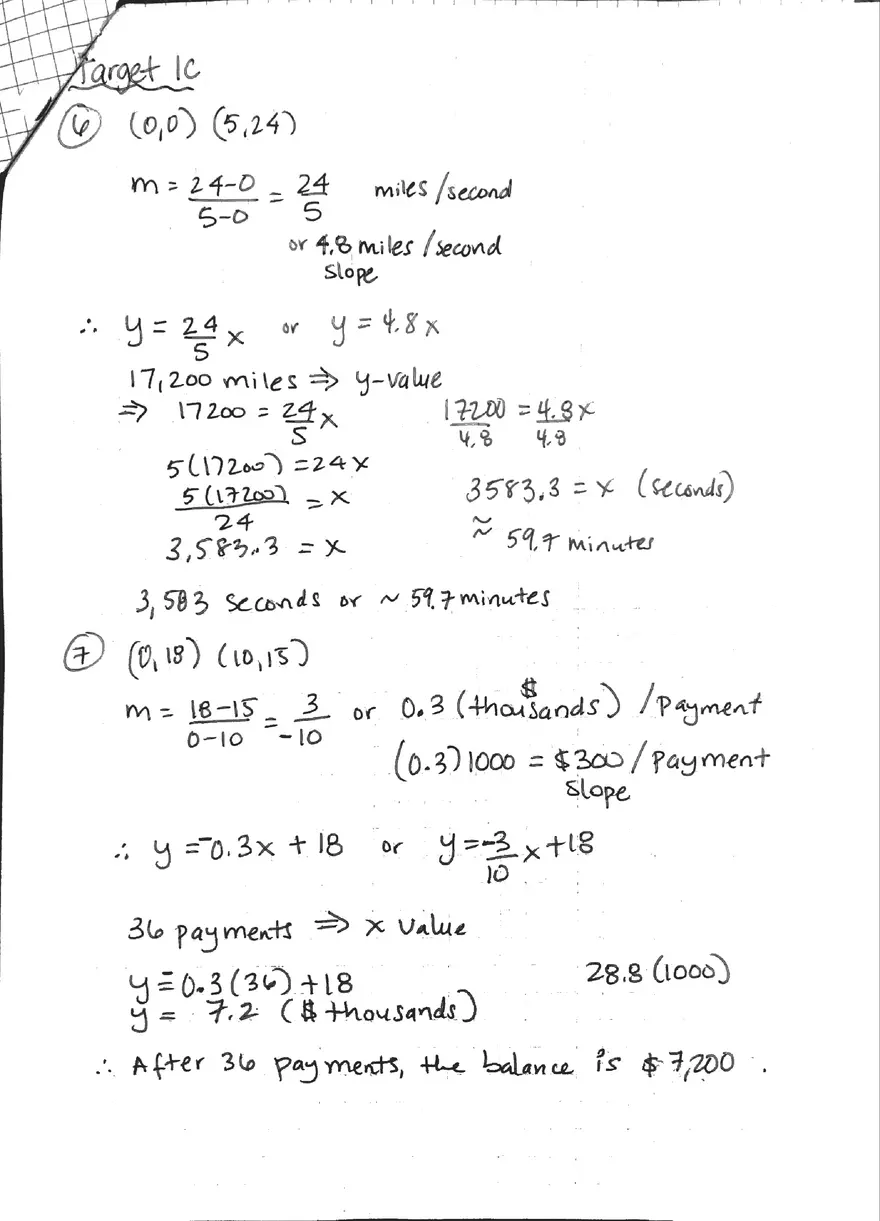 Target 1C
⑥ (0,0) (5,24)
m = 24-0/5-0 = 24/5 miles/second
or 4.8 miles/second
slope
∴ y = 24/5 x or y = 4.8x
17,200 miles ⇒ y-value
⇒ 17200 = 24/5 x 17200/4.8 = 4.8x/4.8
5(17200) = 24x
5(17200)/24 = x 3583.3 = x (seconds)
3,583.3 = x ≈ 59.7 minutes
3,583 seconds or ~ 59.7 minutes
⑦ (0,18) (10,15)
m = 18-15/0-10 = 3/-10 or 0.3 ($ thousands) / payment
(0.3)1000 = $300 / payment
slope
∴ y = -0.3x + 18 or y = -3/10 x + 18
36 payments ⇒ x value
y = -0.3(36) + 18 28.8 (1000)
y = 7.2 ($ thousands)
∴ After 36 payments, the balance is $7,200.